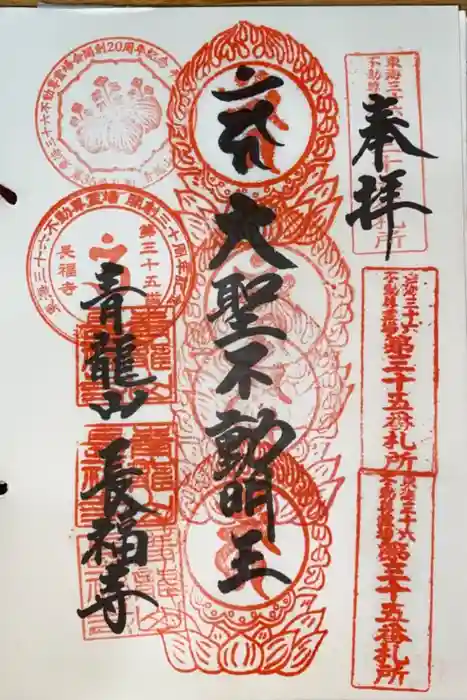 奉拝
東海三十六
不動尊霊場
札所
東海三十六
不動尊霊場
第三十五番札所
東海三十六
不動尊霊場
第三十五番札所
大聖不動明王
三十六不動尊霊場会開創20周年記念
東海三十六不動尊霊場 開創三十周年記念
第三十五番
長福寺
青龍山
長福寺